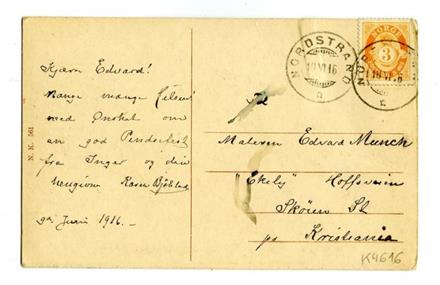 Kjære Edvard!
Mange mange hilsener
med Ønsket om
en god Pindsefest
fra Inger og din
hengivne Karen Bjølstad
9de Juni 1916.
N.K. 561
NORDSTRAND
10 VI 16
NORGE
3
Til
Maleren Edvard Munch
"Ekely" Hoffsveien
Skøien St
pr Kristiania
K4616